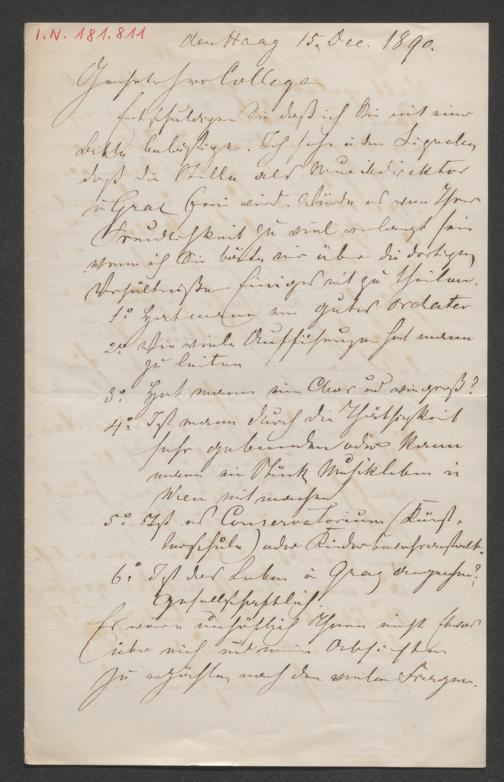 I.N. 181.811
den Haag 15. Dec. 1890.
Geehrter Herr College
Entschuldigen Sie daß ich Sie mit einer
Bitte belästige. Ich sehe in den Signalen,
daß die Stelle als Musikdirektor
in Graz frei wird. Würde es von Ihrer
Freundlichkeit zu viel verlangt sein
wenn ich Sie bitte mir über die dortigen
Verhältniße Einiges mit zu theilen.
1° Hat mann ein gutes Orchester
2° Wie viele Aufführungen hat mann
zu leiten
3° Hat mann ein Chor und wie groß?
4° Ist mann durch die Thätigkeit
sehr gebunden oder kann
mann ein Stück Musikleben in
Wien mit machen
5° Ist es Conservatorium (Künst-
lerschule) oder Kinderbewahranstalt.
6° Ist das Leben in Graz angenehm?
Gesellschaftlich!
Es wäre unhöflich Ihnen nicht etwas
über mich und meine Absichten
zu erzählen nach den vielen Fragen.